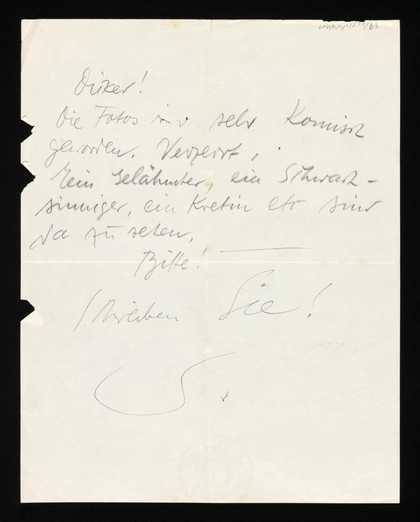 Die Fotos sehr Komisch
geworden. Verzerrt,
ein Gelähmter, ein Schwach-
sinniger, ein Kretin etc sind
da zu sehen.
Bitte!
Schreiben Sie!
S.